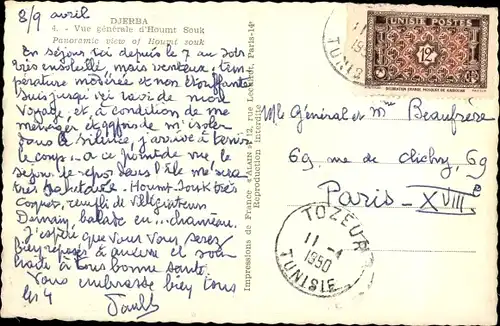 8/9 avril
DJERBA
4. - Vue générale d'Houmt Souk
Panoramic view of Houmt souk
En séjour ici depuis le 7 au soir
très ensoleillé, mais venteux, tem-
pérature modérée et non étouffante
Suis jusqu'ici ravi de mon
voyage, et à condition de me
ménager et de m'isoler
dans le silence, j'arrive à tenir
le coup - à ce point de vue, le
séjour de repos dans l'île me sera
très salutaire - Houmt-Souk très
coquet, rempli de villégiateurs
Demain balade en... chameau.
J'espère que vous vous serez
bien reposés à et
haite à tous bonne santé.
Vous embrasse bien tous
les 4
Impressions de France "ALAIN" 12, rue Paris-14e
Reproduction interdite
TUNISIE POSTES
12F
TUNISIE
Mr le Général et Mme Beaufrère
69, rue de Clichy, 69
Paris - XVIIIe
TOZEUR
11 -4
1950
TUNISIE